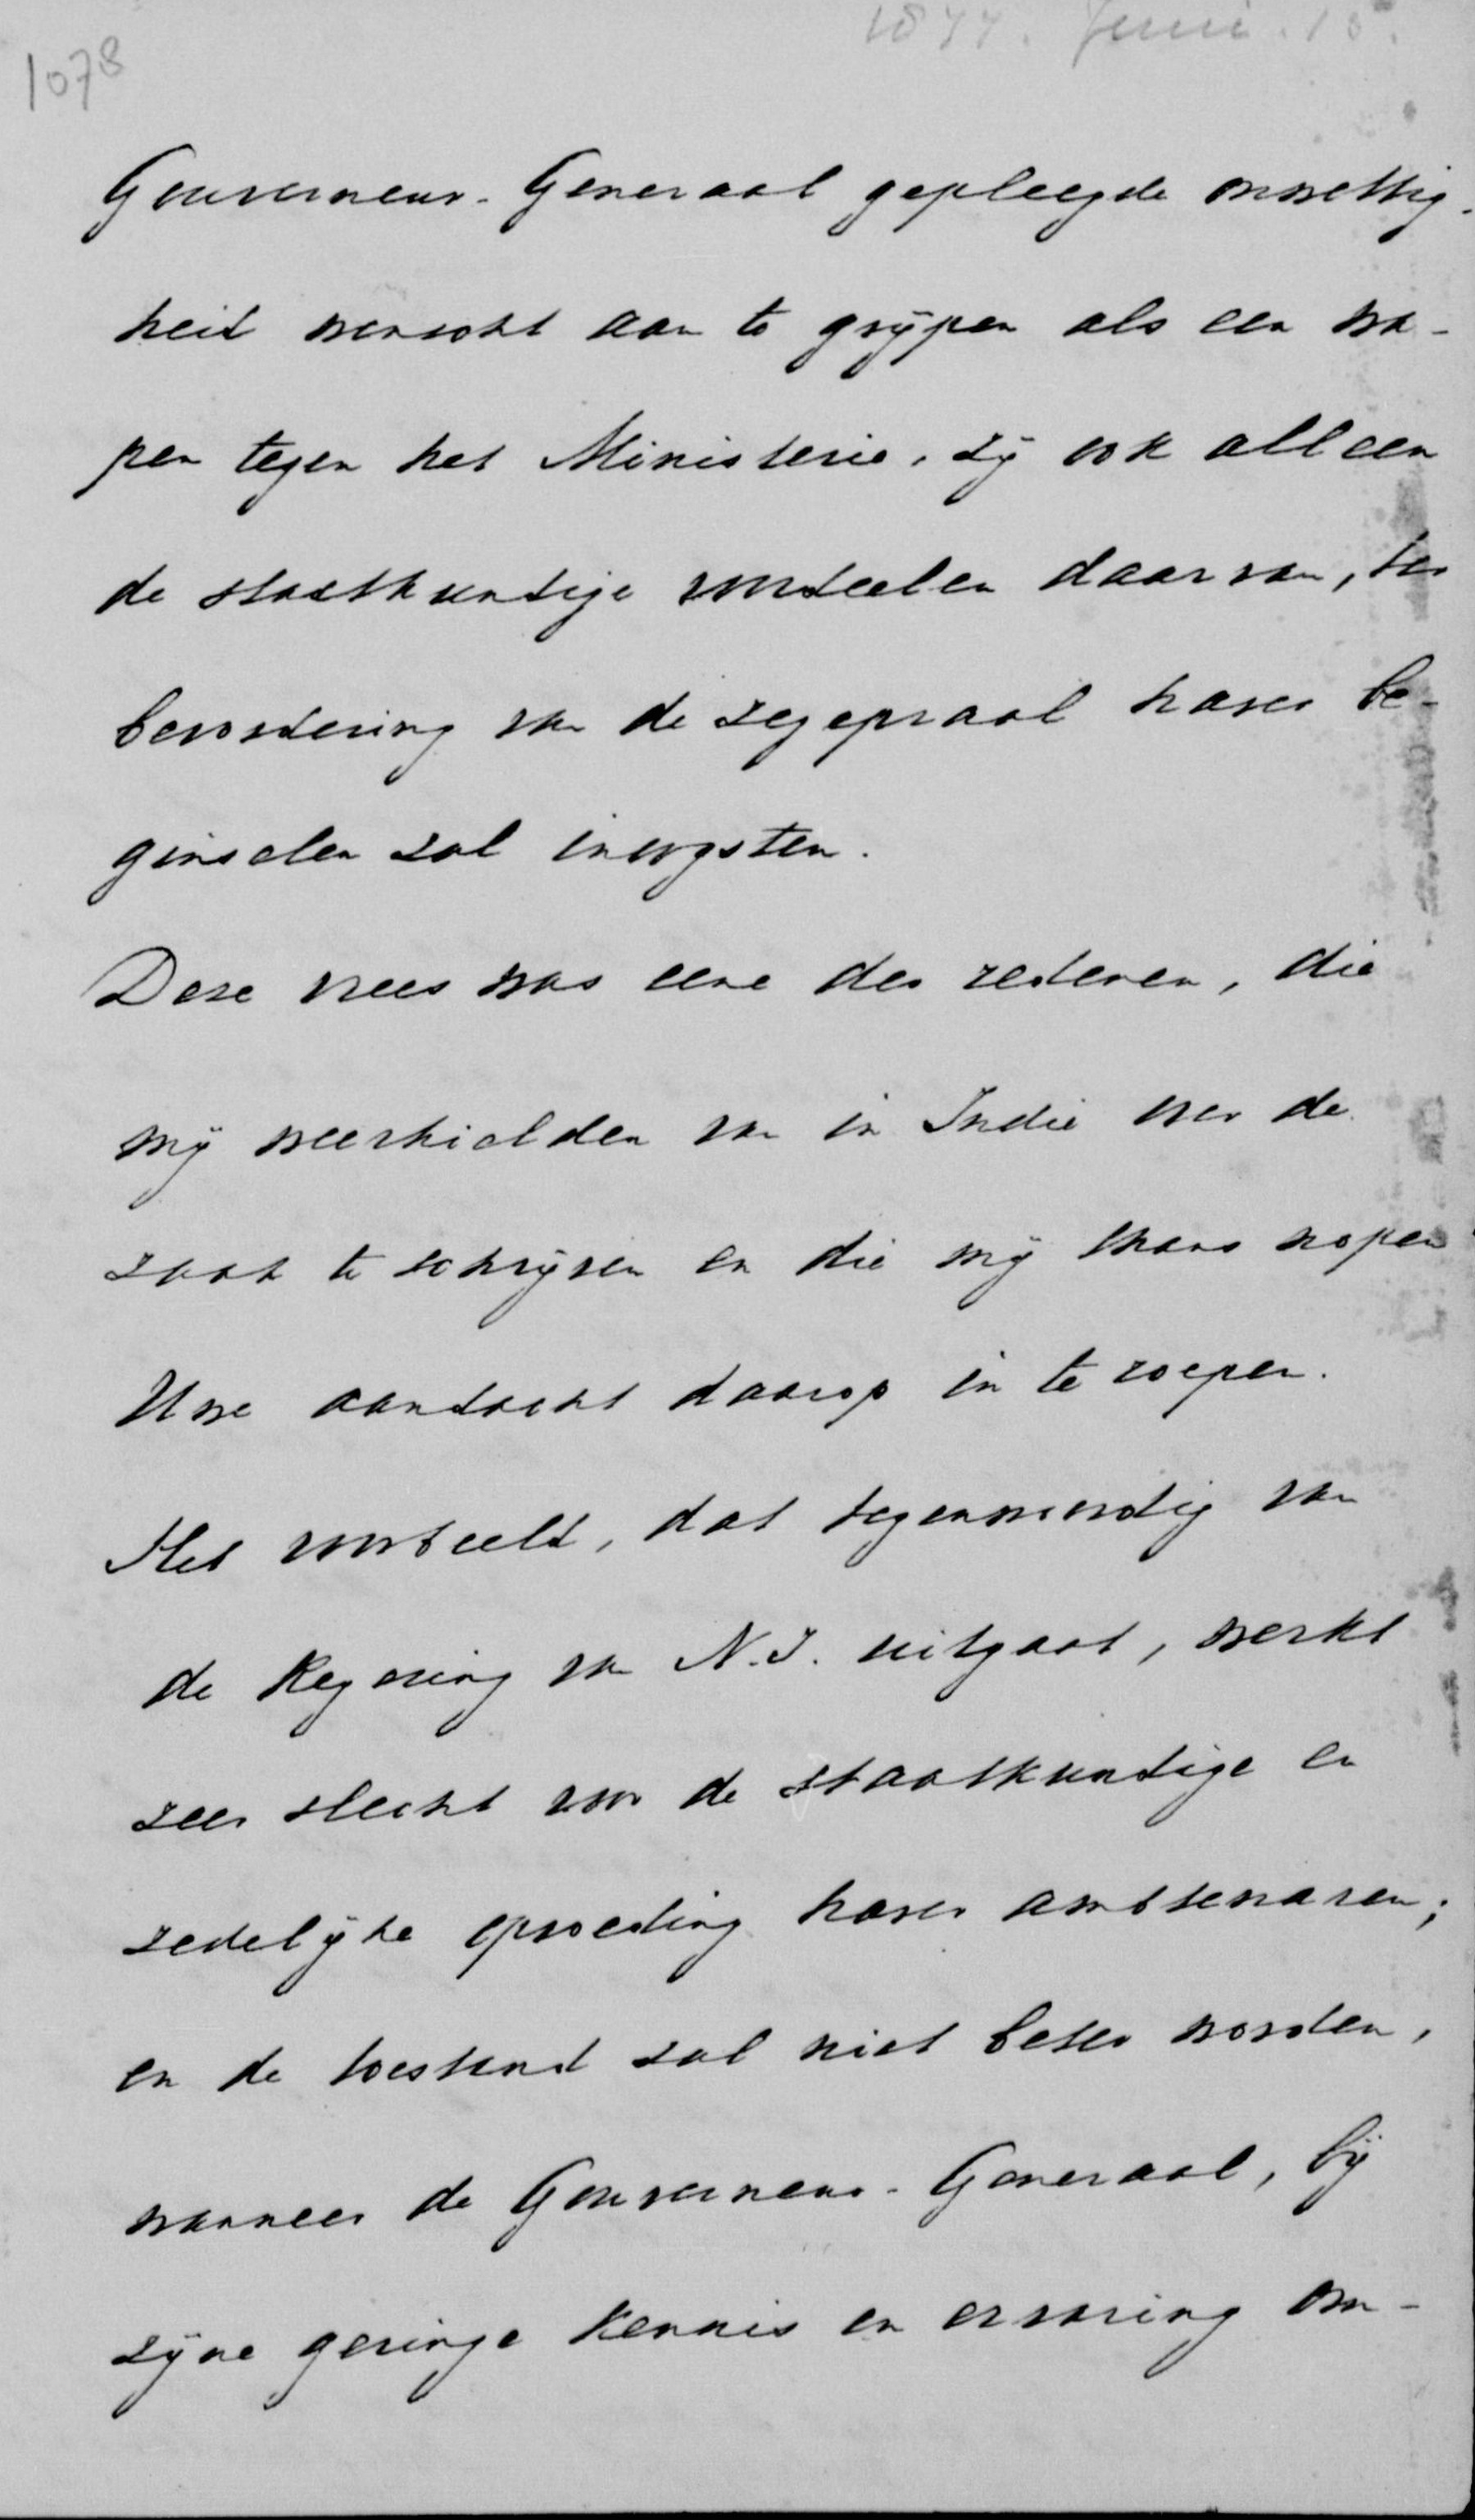 1078
1877. Juni. 15.
Gouverneur-Generaal gepleegde onwettig-
heid wenscht aan te grijpen als een wa-
pen tegen het Ministerie, zij ook alleen
de staatkundige voordeelen daarvan, ter
bevordering van de zegepraal harer be-
ginselen zal inoogsten.
Deze vrees was eene der redenen, die
mij weerhielden van in Indië over de
zaak te schrijven en die mij thans nopen
Uwe aandacht daarop in te roepen.
Het voorbeeld, dat tegenwoordig van
de Regering van N.I. uitgaat, werkt
zeer slecht voor de staatkundige en
zedelijke opvoeding harer ambtenaren;
en de toestand zal niet beter worden,
wanneer de Gouverneur-Generaal, bij
zijne geringe kennis en ervaring om-